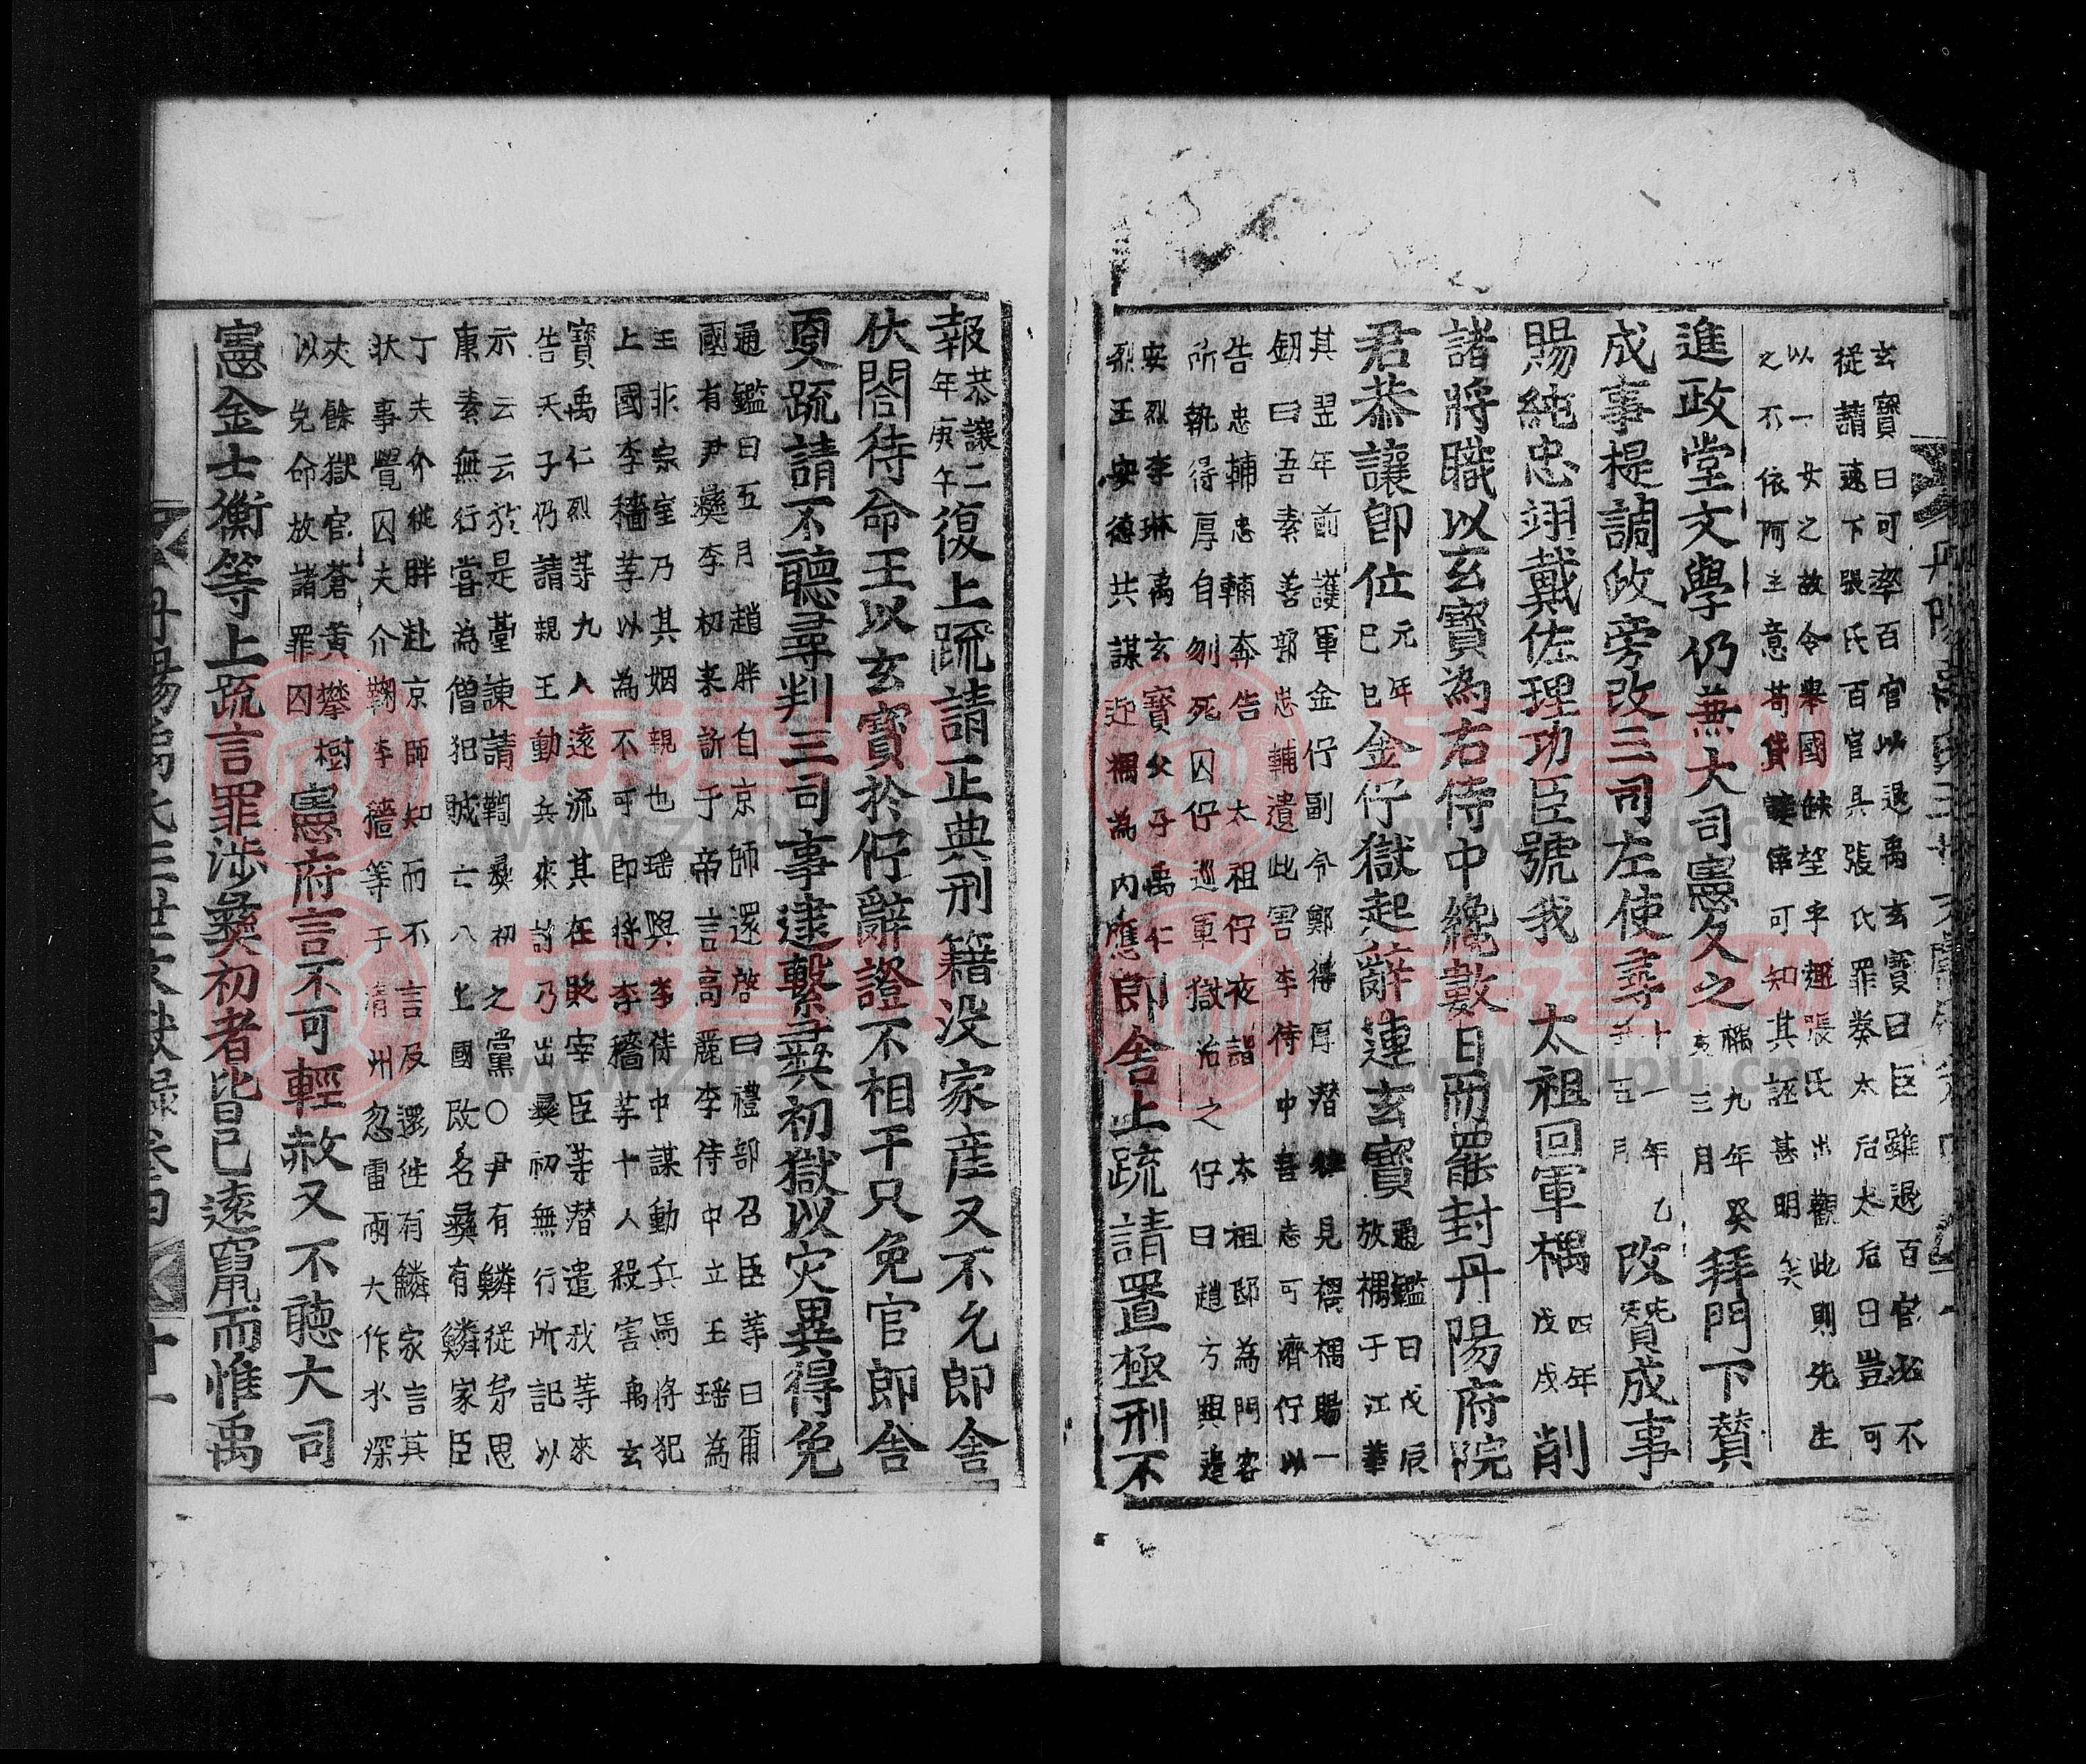 玄寶曰可率百官以退禹玄寶曰臣雖退百官必不
從請速下張氏百官具張氏罪奏太后太后曰豈可
以一女之故令擧國缺望乎趣張氏出觀此則先生
之不依阿主意苟貸
可知其誣甚明矣
進政堂文學仍兼大司憲久之禑九年癸亥三月拜門下贊
成事提調政旁改三司左使尋十一年乙丑五月改判贊成事
賜純忠翊戴佐理功臣號我 太祖回軍禑四年戊戌削
諸將職以玄寶為右侍中纔數日而罷封丹陽府院
君恭讓卽位元年己巳金佇獄起辭連玄寶通鑑曰戊辰放禑于江華
其翌年前護軍金佇副令鄭得厚潛往見禑禑賜一
釼曰吾素善郭忠輔遺此害李侍中吾志可濟佇以
告忠輔忠輔奔告 太祖佇夜詣 太祖邸為門客
所執得厚自刎死囚佇巡軍獄治之佇曰趙方興邊
安烈李琳禹玄寶父子禹仁
烈王安德共謀迎禑為內應郞舍上疏請置極刑不
報恭讓二年庚午復上疏請正典刑籍没家産又不允郞舍
伏閤待命王以玄寶於佇辭證不相干只免官郞舍
更疏請不聽尋判三司事逮繫彛初獄以灾異得免
通鑑曰五月趙胖自京師還啓曰禮部召臣等曰爾
國有尹彛李初来訴于帝言高麗李侍中立王瑶為
王非宗室乃其姻親也瑶與李侍中謀動兵馬將犯
上國李穡等以為不可即將李穡等十人殺害禹玄
寶禹仁烈等九人遠流其在貶宰臣等潛遣我等來
告天子仍請親王動兵來討乃出彛初無行所記以
示云云於是臺諫請鞫彛初之黨○尹有鱗從茅思
康素無行嘗為僧犯賊亡入上國改名彛有鱗家臣
丁夫介從胖赴京師知而不言及還徃有鱗家言其
狀事覺囚夫介鞫李穡等于淸州忽雷雨大作水深
夾餘獄官蒼黃攀樹
以免命放諸罪囚
憲府言不可輕赦又不聽大司
憲金士衡等上疏言罪涉彛初者皆已遠竄而惟禹